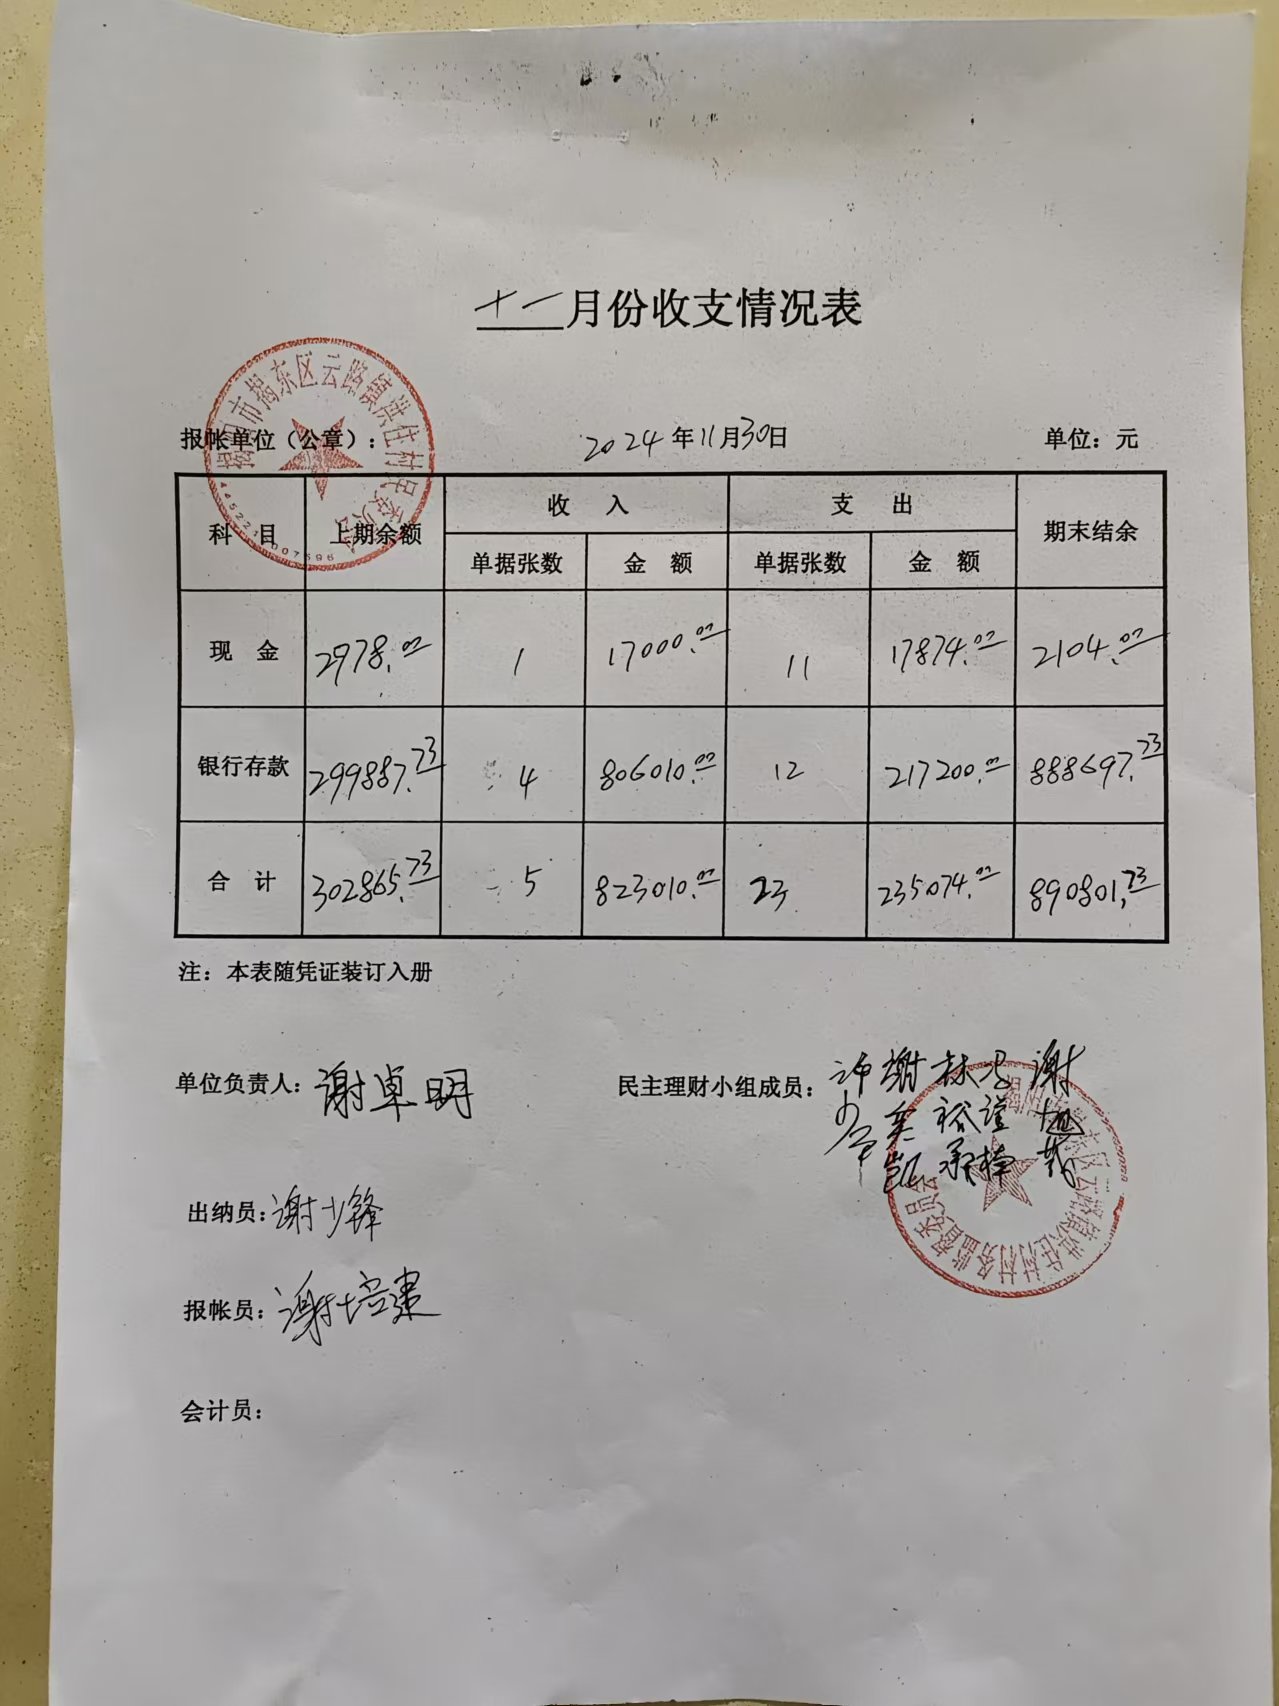 十一月份收支情况表
揭阳市揭东区云路镇洪住村民委员会
报帐单位（公章）： 2024年11月30日 单位：元
科目 上期余额 收入 支出 期末结余
单据张数 金额 单据张数 金额
现金 2978.00 1 17000.00 11 17874.00 2104.00
银行存款 299887.73 4 806010.00 12 217200.00 888697.73
合计 302865.73 5 823010.00 23 235074.00 890801.73
注：本表随凭证装订入册
单位负责人：谢卓明 民主理财小组成员：
出纳员：谢少锋
报帐员：谢培建
会计员：